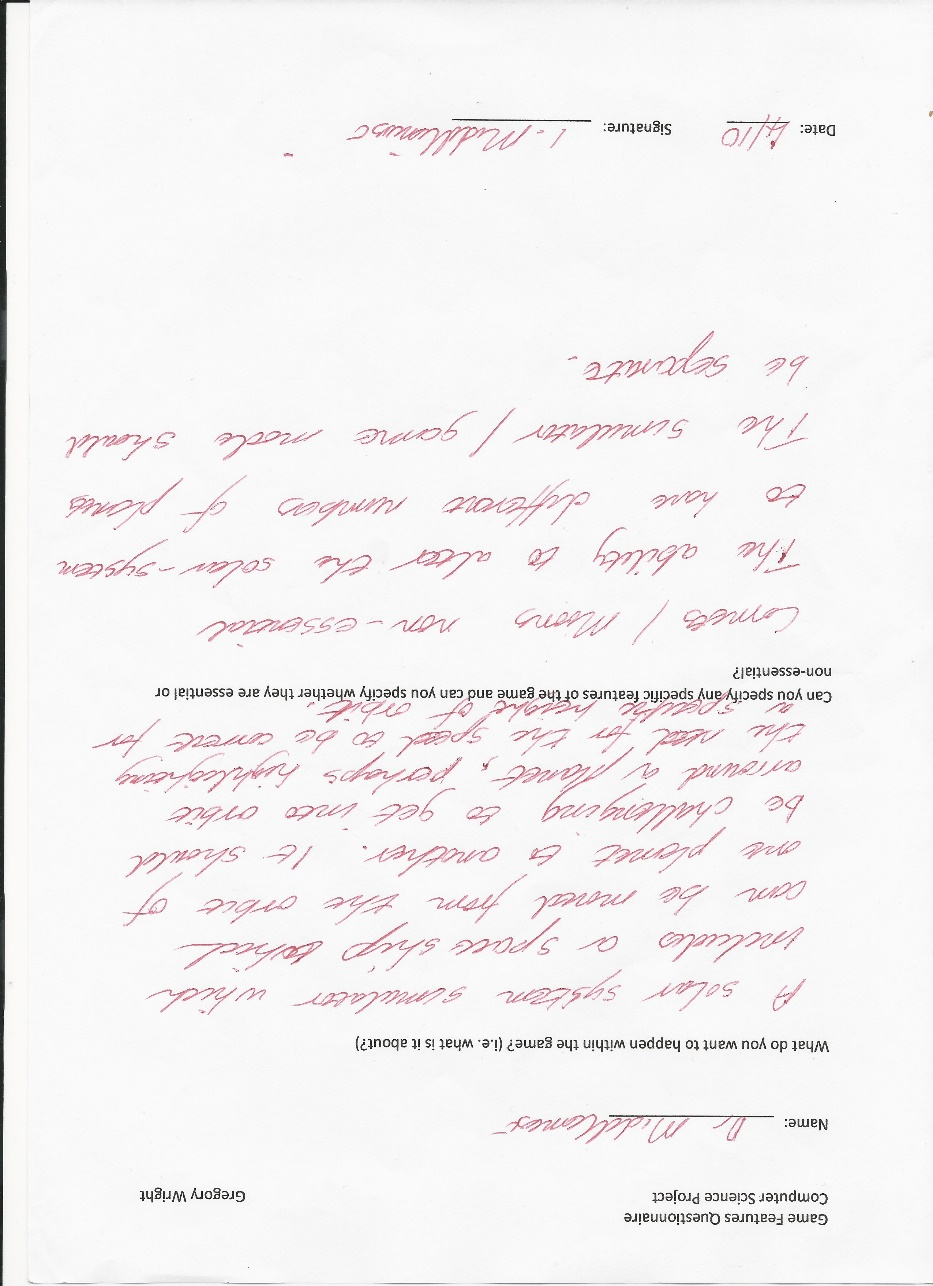 Game Features Questionnaire
Computer Science Project Gregory Wright
Name: Dr Middlemiss
What do you want to happen within the game? (i.e. what is it about?)
A solar system simulator which
includes a space ship
can be moved from the orbit of
one planet to another. It should
be challenging to get into orbit
arround a planet, perhaps highlighting
the need for the speed to be correct for
a specific height of orbit.
Can you specify any specific features of the game and can you specify whether they are essential or
non-essential?
Comets / Moons non-essential
The ability to alter the solar-system
to have different numbers of planets
The simulator / game mode should
be separate.
Date: 4/10 Signature: I. Middlemiss